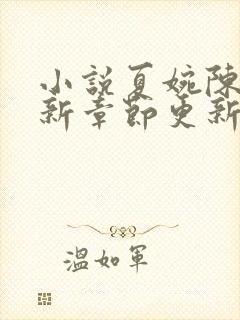 小説夏婉陳
新章節更新
溫如軍